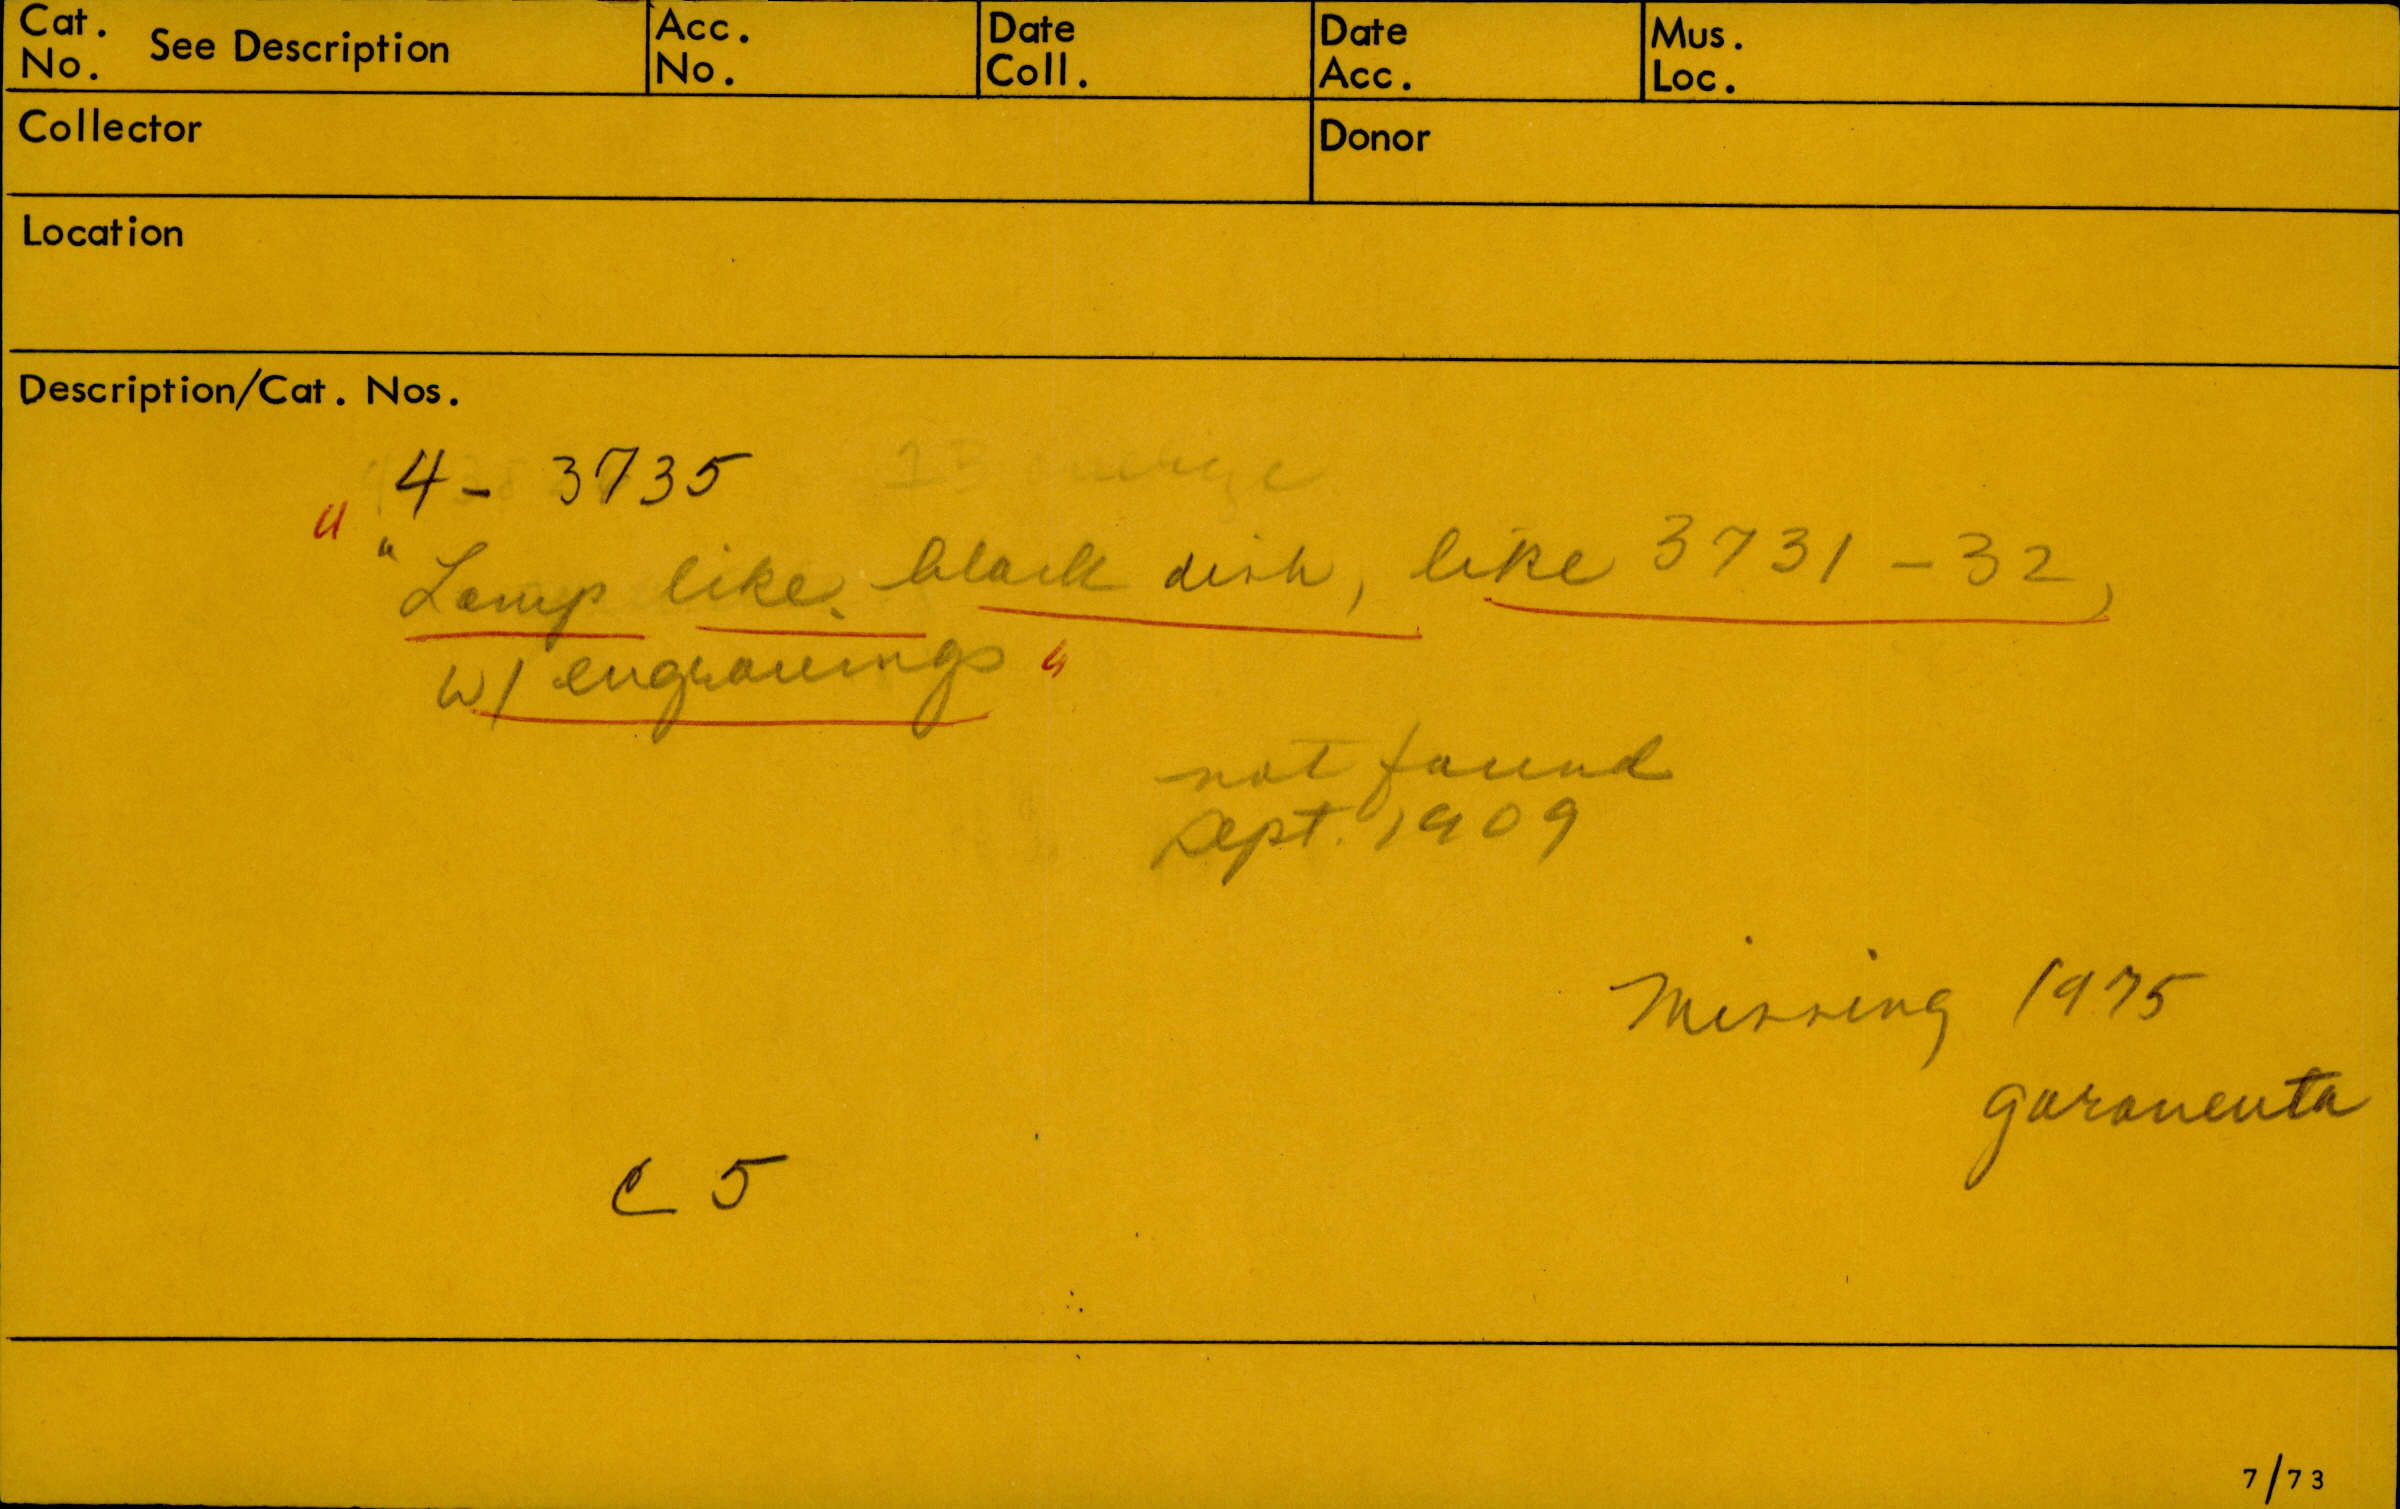 Cat. No. See Description
Acc. No.
Date Coll.
Date Acc.
Mus. Loc.
Collector
Donor
Location
Description/Cat. Nos.
4-3735
" "Lamp like black dish, like 3731-32,
w/ engravings "
not found
Sept. 1909
Missing 1975
C 5
7/73